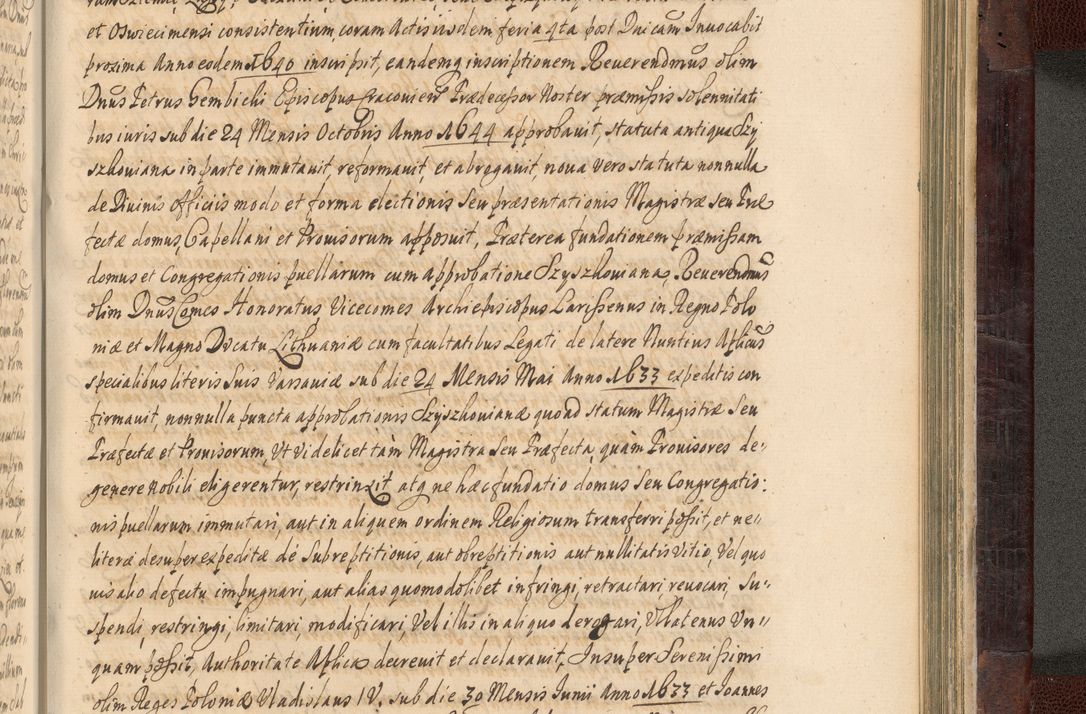 et Oswiecimensi consistentium, coram Actis iisdem feria 4ta post Dnicam Inuocabit
proxima Anno eodem 1640 inscripsit, eandemq inscriptionem Reuerendmus olim
Dnus Petrus Gembicki Episcopus Cracouien Prædecessor Noster præmissis solennitati
bus iuris sub die 24 Mensis Octobris Anno 1644 approbauit, statuta antiqua Szy
szkouiana in parte immutauit, reformauit, et abrogauit, noua vero statuta nonnulla
de Diuinis Officiis modo et forma electionis seu præsentationis Magistræ seu Præ
fectæ domus, Capellani et Prouisorum apposuit, Præterea fundationem præmissam
domus et Congregationis puellarum cum approbatione Szyszkouiana, Reuerendmus
olim Dnus Comes Honoratus Vicecomes Archiepiscopus Larissenus in Regno Polo
niæ et Magno Ducatu Lithuaniæ cum facultatibus Legati de latere Nuntius Aplicus
specialibus literis suis Varsauiæ sub die 24 Mensis Mai Anno 1633 expeditis con
firmauit, nonnulla puncta approbationis Szyszkouianæ quoad statum Magistræ seu
Præfectæ et Prouisorum, Vt videlicet tàm Magistra seu Præfecta, quàm Prouisores de
genere nobili eligerentur, restrinxit atq ne hæc fundatio domus seu Congregatio:
nis puellarum immutari, aut in aliquem ordinem Religiosum transferri possit, et ne
literæ desuper expeditæ de subreptitionis, aut obreptitionis aut nullitatis vitio, Vel quo
uis alio defectu impugnari, aut alias quomodolibet infringi, retractari, reuocari, su
spendi, restringi, limitari, modificari, Vel illis in aliquo derogari, Vllatenus Vn
quam possit, Authoritate Aplica decreuit et declarauit, Insuper Serenissimi
olim Reges Poloniæ Vladislaus IV. sub die 30 Mensis Iunii Anno 1633 et Ioannes